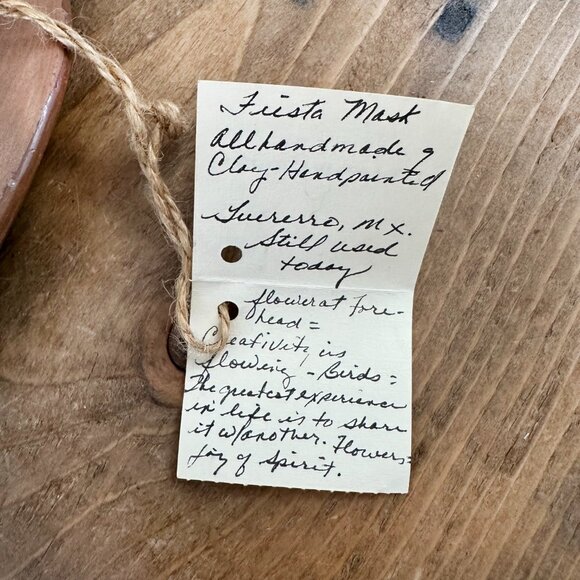 Fiesta Mask
all handmade of
Clay-Handpainted
Guererro, Mx.
Still used
today
flower at fore-
head =
Creativity is
flowing - Birds =
The greatest experience
in life is to share
it w/another. Flowers=
Joy of Spirit.